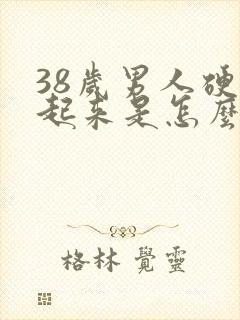 38歲男人硬
起來是怎麼
格林 覺靈